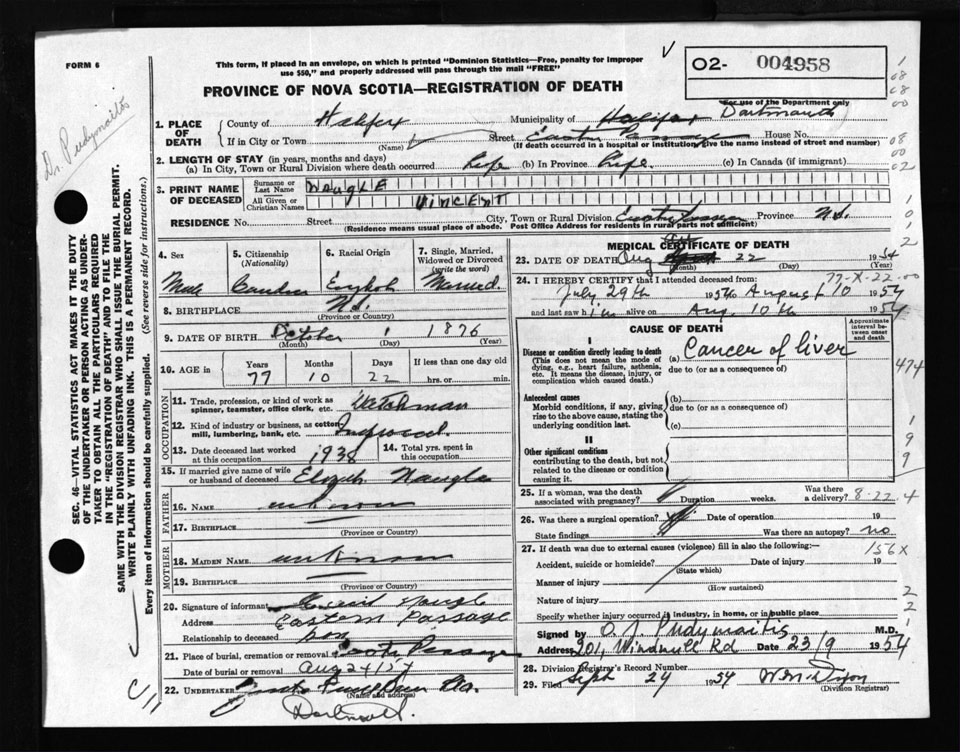 FORM 6
This form, if placed in an envelope, on which is printed "Dominion Statistics—Free, penalty for improper
use $50," and properly addressed will pass through the mail "FREE"
02- 004958
For use of the Department only
PROVINCE OF NOVA SCOTIA—REGISTRATION OF DEATH
Dr. Prudymaitis
SEC. 46—VITAL STATISTICS ACT MAKES IT THE DUTY
OF THE UNDERTAKER OR PERSON ACTING AS UNDER-
TAKER TO OBTAIN ALL THE PARTICULARS REQUIRED
IN THE "REGISTRATION OF DEATH" AND TO FILE THE
SAME WITH THE DIVISION REGISTRAR WHO SHALL ISSUE THE BURIAL PERMIT.
WRITE PLAINLY WITH UNFADING INK. THIS IS A PERMANENT RECORD.
Every item of information should be carefully supplied. (See reverse side for instructions.)
1. PLACE OF DEATH County of Halifax Municipality of Halifax Dartmouth
If in City or Town (Name) Street Eastern Passage House No.
(If death occurred in a hospital or institution, give the name instead of street and number)
2. LENGTH OF STAY (in years, months and days)
(a) In City, Town or Rural Division where death occurred Life (b) In Province Life (c) In Canada (if immigrant)
3. PRINT NAME OF DECEASED Surname or Last Name NAUGLE
All Given or Christian Names VINCENT
RESIDENCE No. Street City, Town or Rural Division Eastern Passage Province N.S.
(Residence means usual place of abode. Post Office Address for residents in rural parts not sufficient)
4. Sex Male
5. Citizenship (Nationality) Canadian
6. Racial Origin English
7. Single, Married, Widowed or Divorced (write the word) Married
8. BIRTHPLACE N.S.
(Province or Country)
9. DATE OF BIRTH October 1 1876
(Month) (Day) (Year)
10. AGE in Years 77 Months 10 Days 22 If less than one day old hrs. or min.
OCCUPATION
11. Trade, profession, or kind of work as spinner, teamster, office clerk, etc. Watchman
12. Kind of industry or business, as cotton mill, lumbering, bank, etc.
13. Date deceased last worked at this occupation 1938
14. Total yrs. spent in this occupation
15. If married give name of wife or husband of deceased Naugle
FATHER
16. NAME unknown
17. BIRTHPLACE
(Province or Country)
MOTHER
18. MAIDEN NAME unknown
19. BIRTHPLACE
(Province or Country)
20. Signature of informant Naugle
Address Eastern Passage
Relationship to deceased son
21. Place of burial, cremation or removal Eastern Passage
Date of burial or removal Aug 24/54
22. UNDERTAKER
(Name and address)
Dartmouth
MEDICAL CERTIFICATE OF DEATH
23. DATE OF DEATH Aug 22 1954
(Month) (Day) (Year)
77-X-22-00
24. I HEREBY CERTIFY that I attended deceased from:
July 29th 1954 to August 10 1954
and last saw him alive on Aug. 10th 1954
CAUSE OF DEATH
Approximate interval between onset and death
I
Disease or condition directly leading to death
(This does not mean the mode of dying, e.g., heart failure, asthenia, etc. It means the disease, injury, or complication which caused death.)
(a) Cancer of liver
due to (or as a consequence of)
Antecedent causes
Morbid conditions, if any, giving rise to the above cause, stating the underlying condition last.
(b)
due to (or as a consequence of)
(c)
II
Other significant conditions
contributing to the death, but not related to the disease or condition causing it.
25. If a woman, was the death associated with pregnancy? Duration weeks. Was there a delivery? 8-22-4
26. Was there a surgical operation? Date of operation 19
State findings Was there an autopsy? no
156X
27. If death was due to external causes (violence) fill in also the following:—
Accident, suicide or homicide? Date of injury 19
(State which)
Manner of injury
(How sustained)
Nature of injury
Specify whether injury occurred in industry, in home, or in public place
Signed by O. J. Prudymaitis M.D.
Address 201, Windmill Rd Date 23/9 1954
28. Division Registrar's Record Number
29. Filed Sept 24 1954 W. M. Dixon
(Division Registrar)